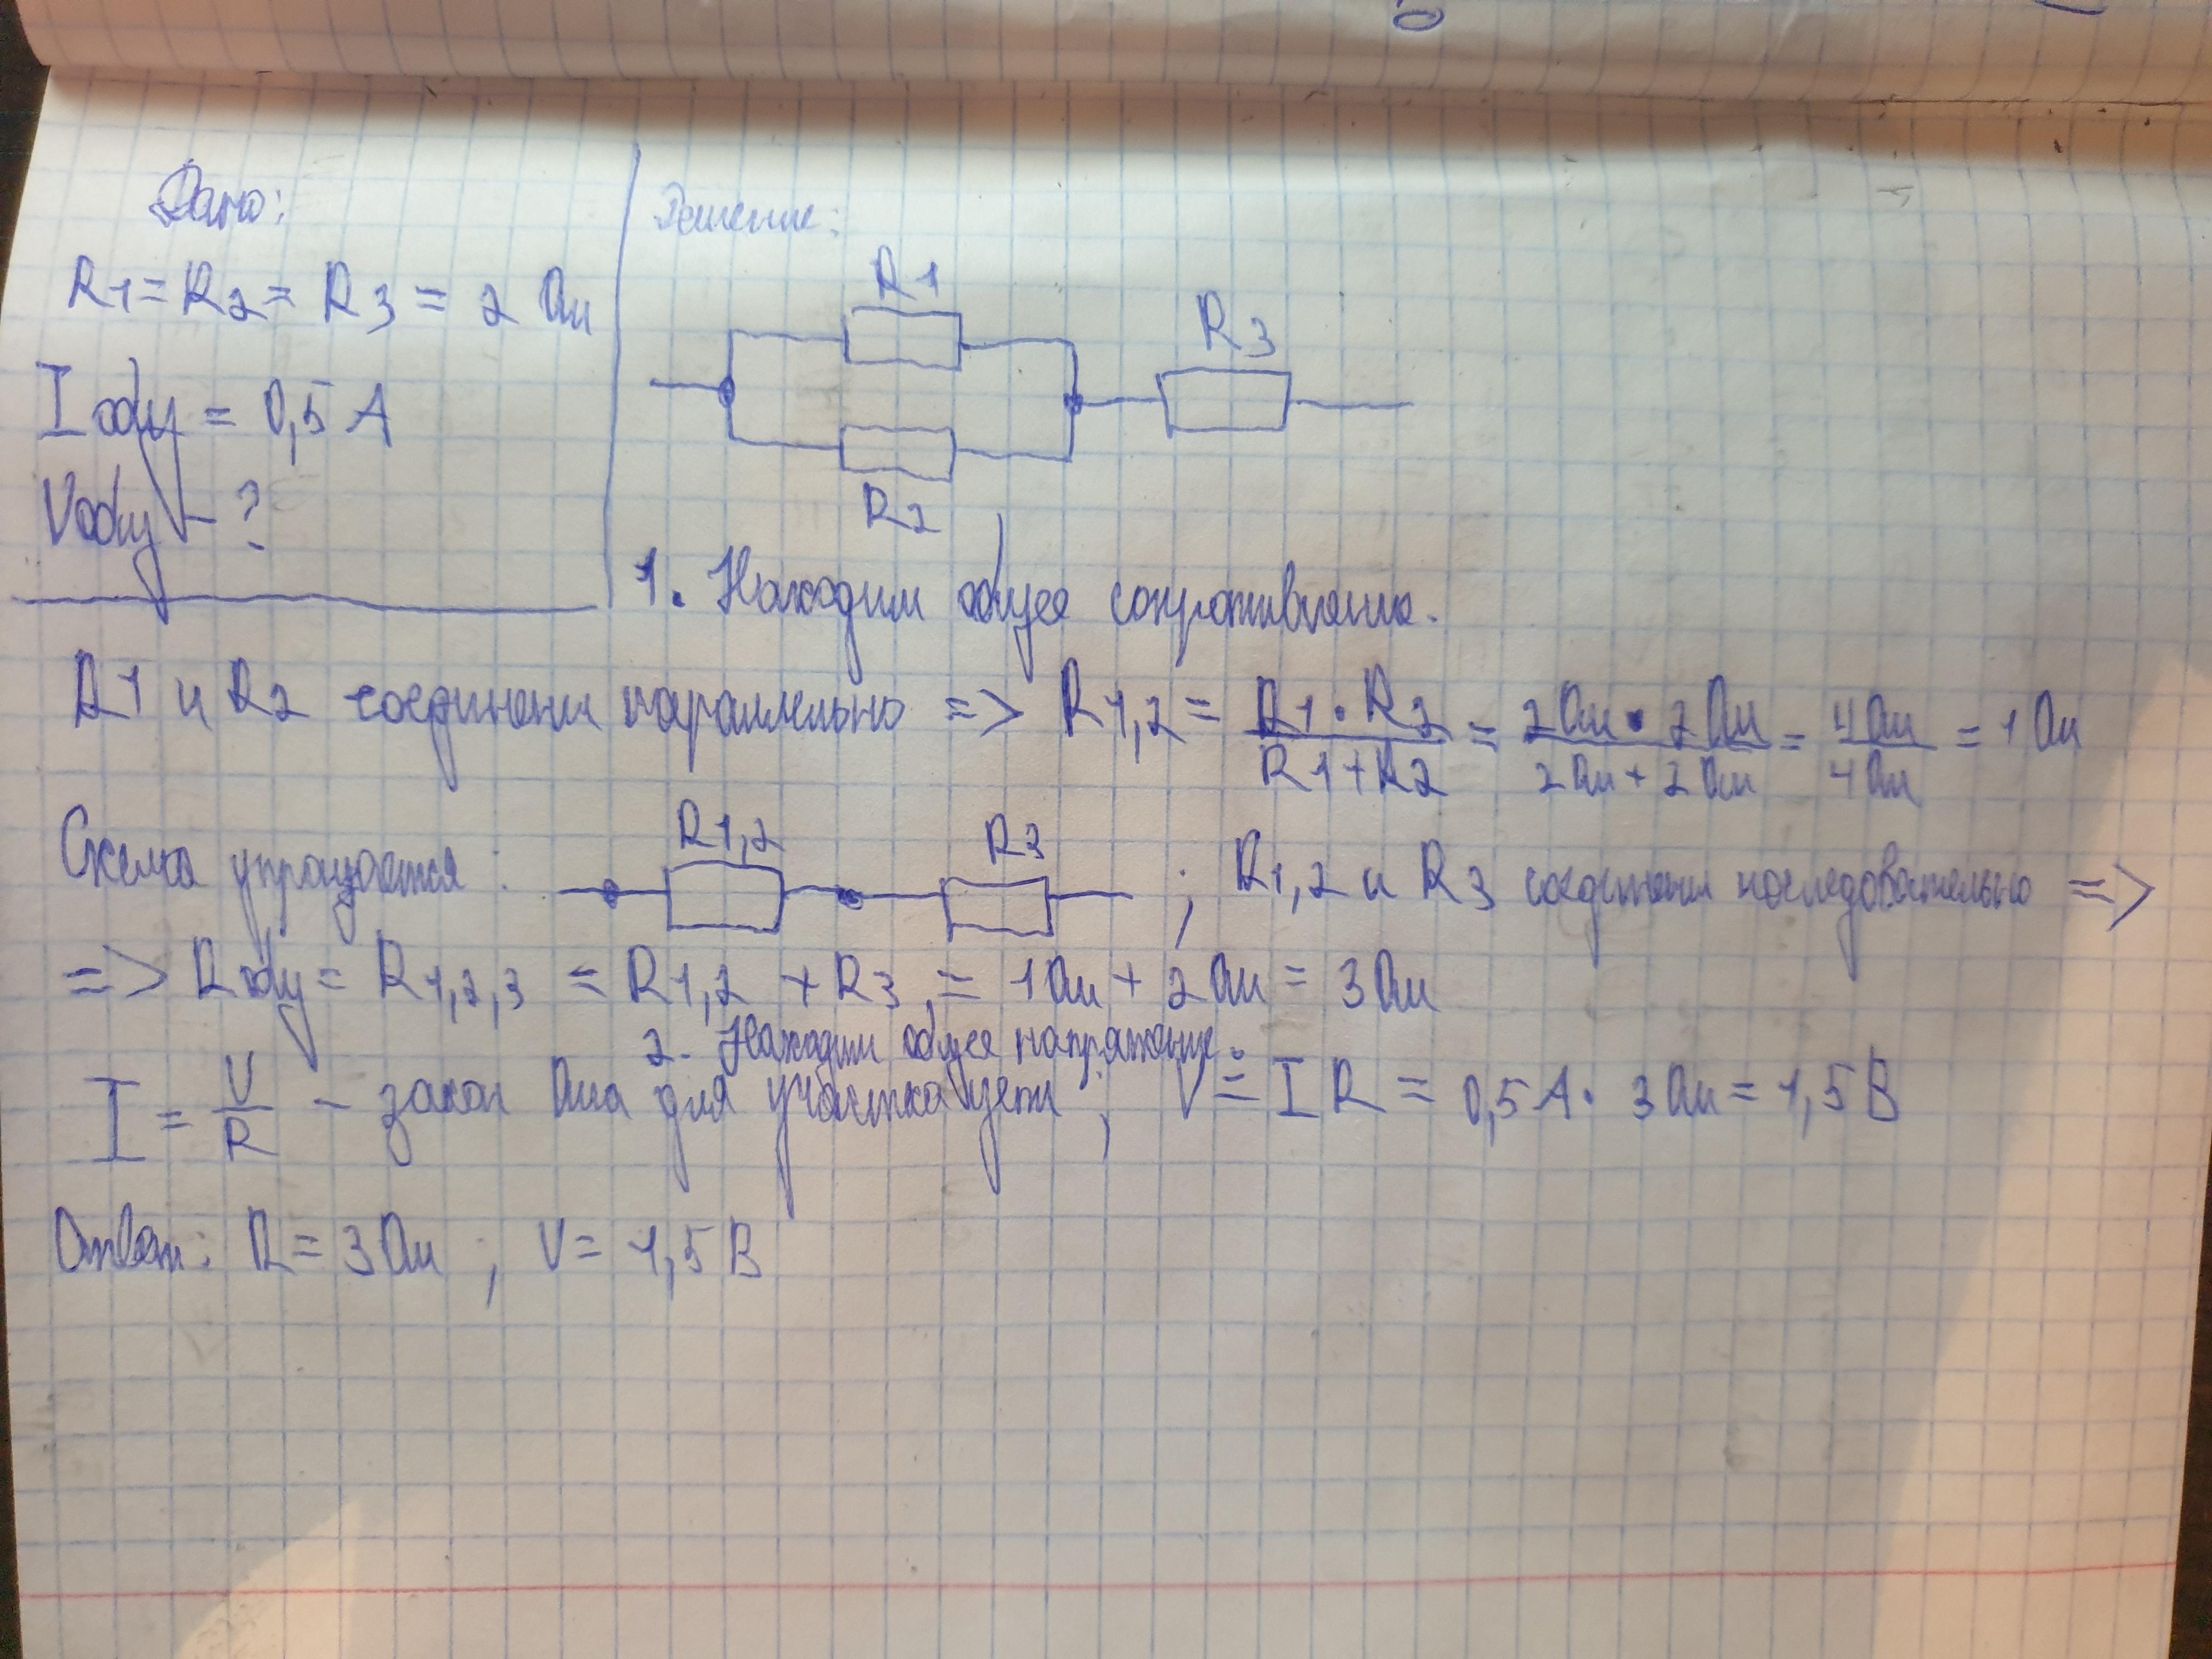 Дано:
R1 = R2 = R3 = 2 Ом
I общ = 0,5 А
Vобщ - ?
Решение:
R1
R3
R2
1. Находим общее сопротивление.
R1 и R2 соединены параллельно => R1,2 = R1 · R2 / R1 + R2 = 2 Ом · 2 Ом / 2 Ом + 2 Ом = 4 Ом / 4 Ом = 1 Ом
Схема упрощается : R1,2 R3 ; R1,2 и R3 соединены последовательно =>
=> R общ = R1,2,3 = R1,2 + R3 = 1 Ом + 2 Ом = 3 Ом
2. Находим общее напряжение.
I = V / R - закон Ома для участка цепи ; V = I R = 0,5 А · 3 Ом = 1,5 В
Ответ: R = 3 Ом ; V = 1,5 В